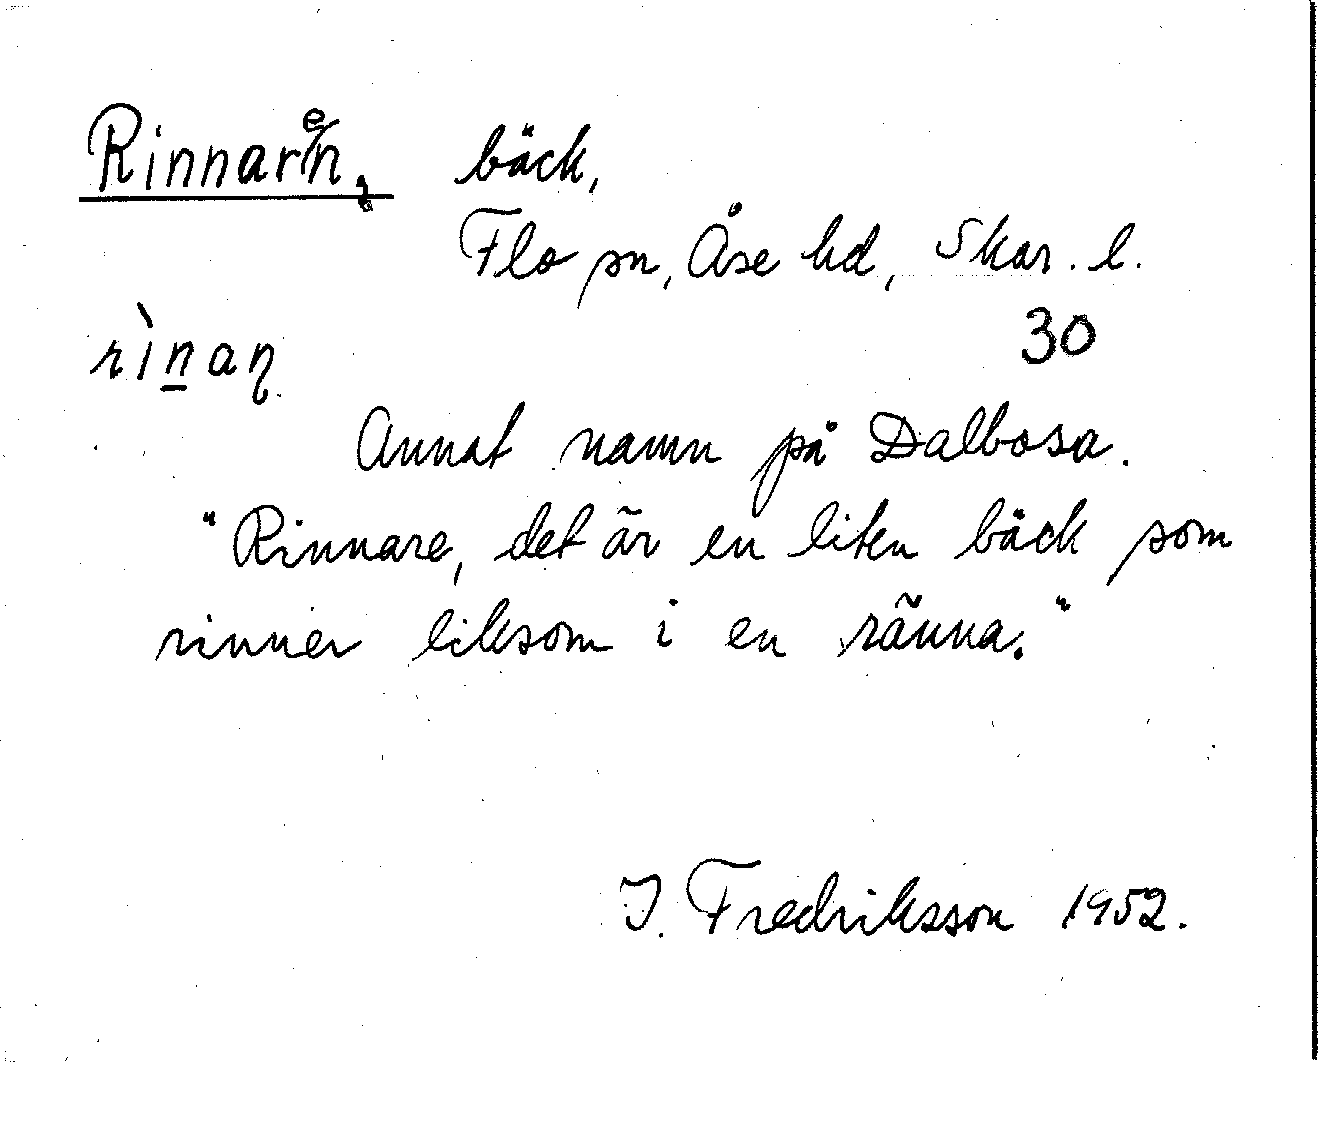 Rinnaren, bäck,
Flo sn, Åse hd, Skar. l.
rìnaɳ 30
Annat namn på Dalbosa.
"Rinnare, det är en liten bäck som
rinner liksom i en ränna."
J. Fredriksson 1952.